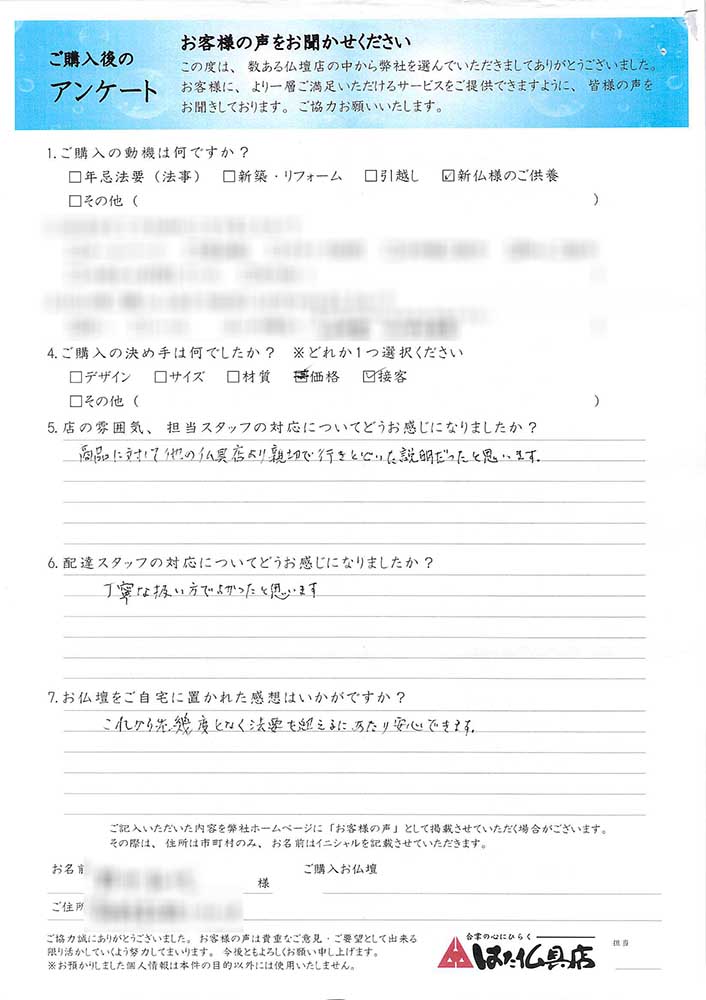 ご購入後の
アンケート
お客様の声をお聞かせください
この度は、数ある仏壇店の中から弊社を選んでいただきましてありがとうございました。
お客様に、より一層ご満足いただけるサービスをご提供できますように、皆様の声を
お聞きしております。ご協力お願いいたします。
1.ご購入の動機は何ですか?
□年忌法要(法事) □新築・リフォーム □引越し ☑新仏様のご供養
□その他( )
4.ご購入の決め手は何でしたか? ※どれか1つ選択ください
□デザイン □サイズ □材質 価格 ☑接客
□その他( )
5.店の雰囲気、担当スタッフの対応についてどうお感じになりましたか?
商品に対して他の仏具店より親切で行きとどいた説明だったと思います。
6.配達スタッフの対応についてどうお感じになりましたか?
丁寧な扱い方でよかったと思います
7.お仏壇をご自宅に置かれた感想はいかがですか?
これから先幾度となく法要を迎えるにあたり安心できます。
ご記入いただいた内容を弊社ホームページに「お客様の声」として掲載させていただく場合がございます。
その際は、住所は市町村のみ、お名前はイニシャルを記載させていただきます。
お名前 様 ご購入お仏壇
ご住所
ご協力誠にありがとうございました。お客様の声は貴重なご意見・ご要望として出来る
限り活かしていくよう努力してまいります。今後ともよろしくお願い申し上げます。
※お預かりしました個人情報は本件の目的以外には使用いたしません。
合掌の心にひらく
はた仏具店
担当